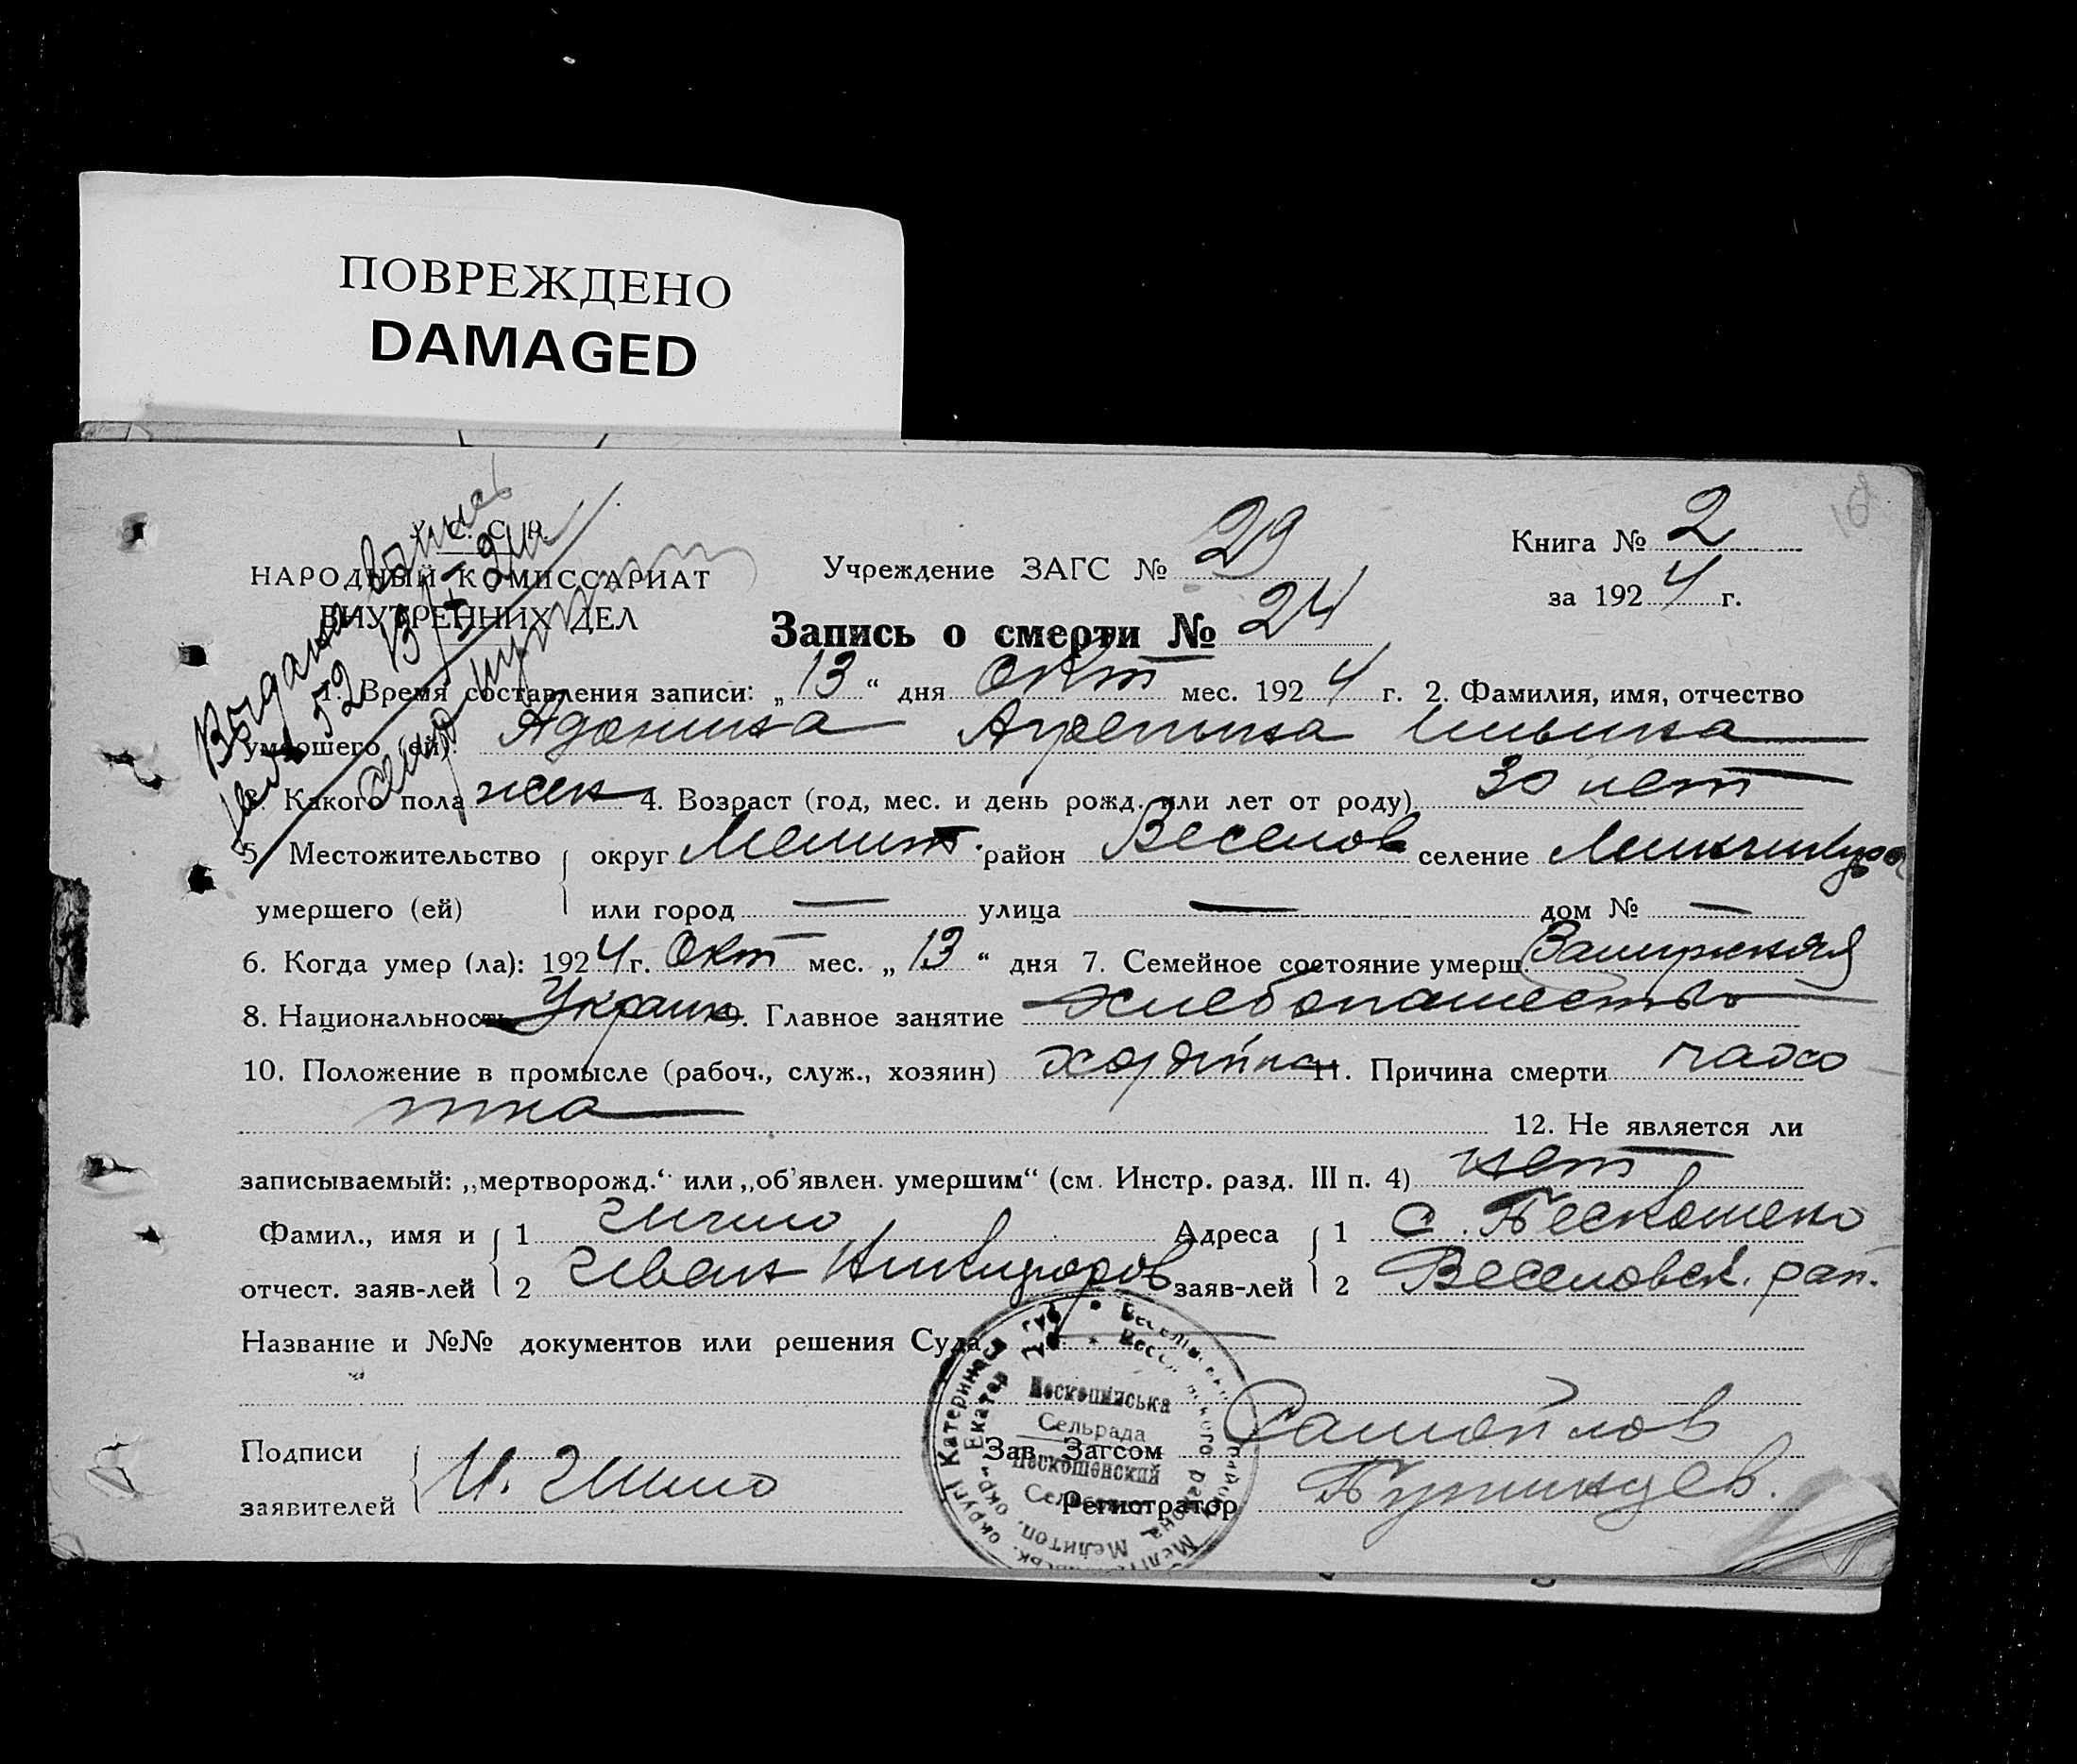 ПОВРЕЖДЕНО
DAMAGED
У. С. С. Р.
НАРОДНЫЙ КОМИССАРИАТ
ВНУТРЕННИХ ДЕЛ
Учреждение ЗАГС № 29
Книга № 2
за 1924 г.
Запись о смерти № 24
1. Время составления записи: „13“ дня Окт мес. 1924 г. 2. Фамилия, имя, отчество
умершего (ей): Адонина Агрепина
3. Какого пола жен 4. Возраст (год, мес. и день рожд. или лет от роду) 30 лет
5. Местожительство округ Мелит. район Веселов селение
умершего (ей) или город — улица — дом № —
6. Когда умер (ла): 1924 г. Окт мес. „13“ дня 7. Семейное состояние умерш. Замужняя
8. Национальность Украин 9. Главное занятие хлебопашество
10. Положение в промысле (рабоч., служ., хозяин) 11. Причина смерти чахо
тка
12. Не является ли
записываемый: „мертворожд.“ или „об'явлен. умершим“ (см. Инстр. разд. III п. 4) нет
Фамил., имя и 1 Адреса 1 с.
отчест. заяв-лей 2 Иван Никифоров заяв-лей 2 Веселовск. рай.
Название и №№ документов или решения Суда
Подписи
Зав. Загсом Самойлов
заявителей И.
Регистратор
Сельрада